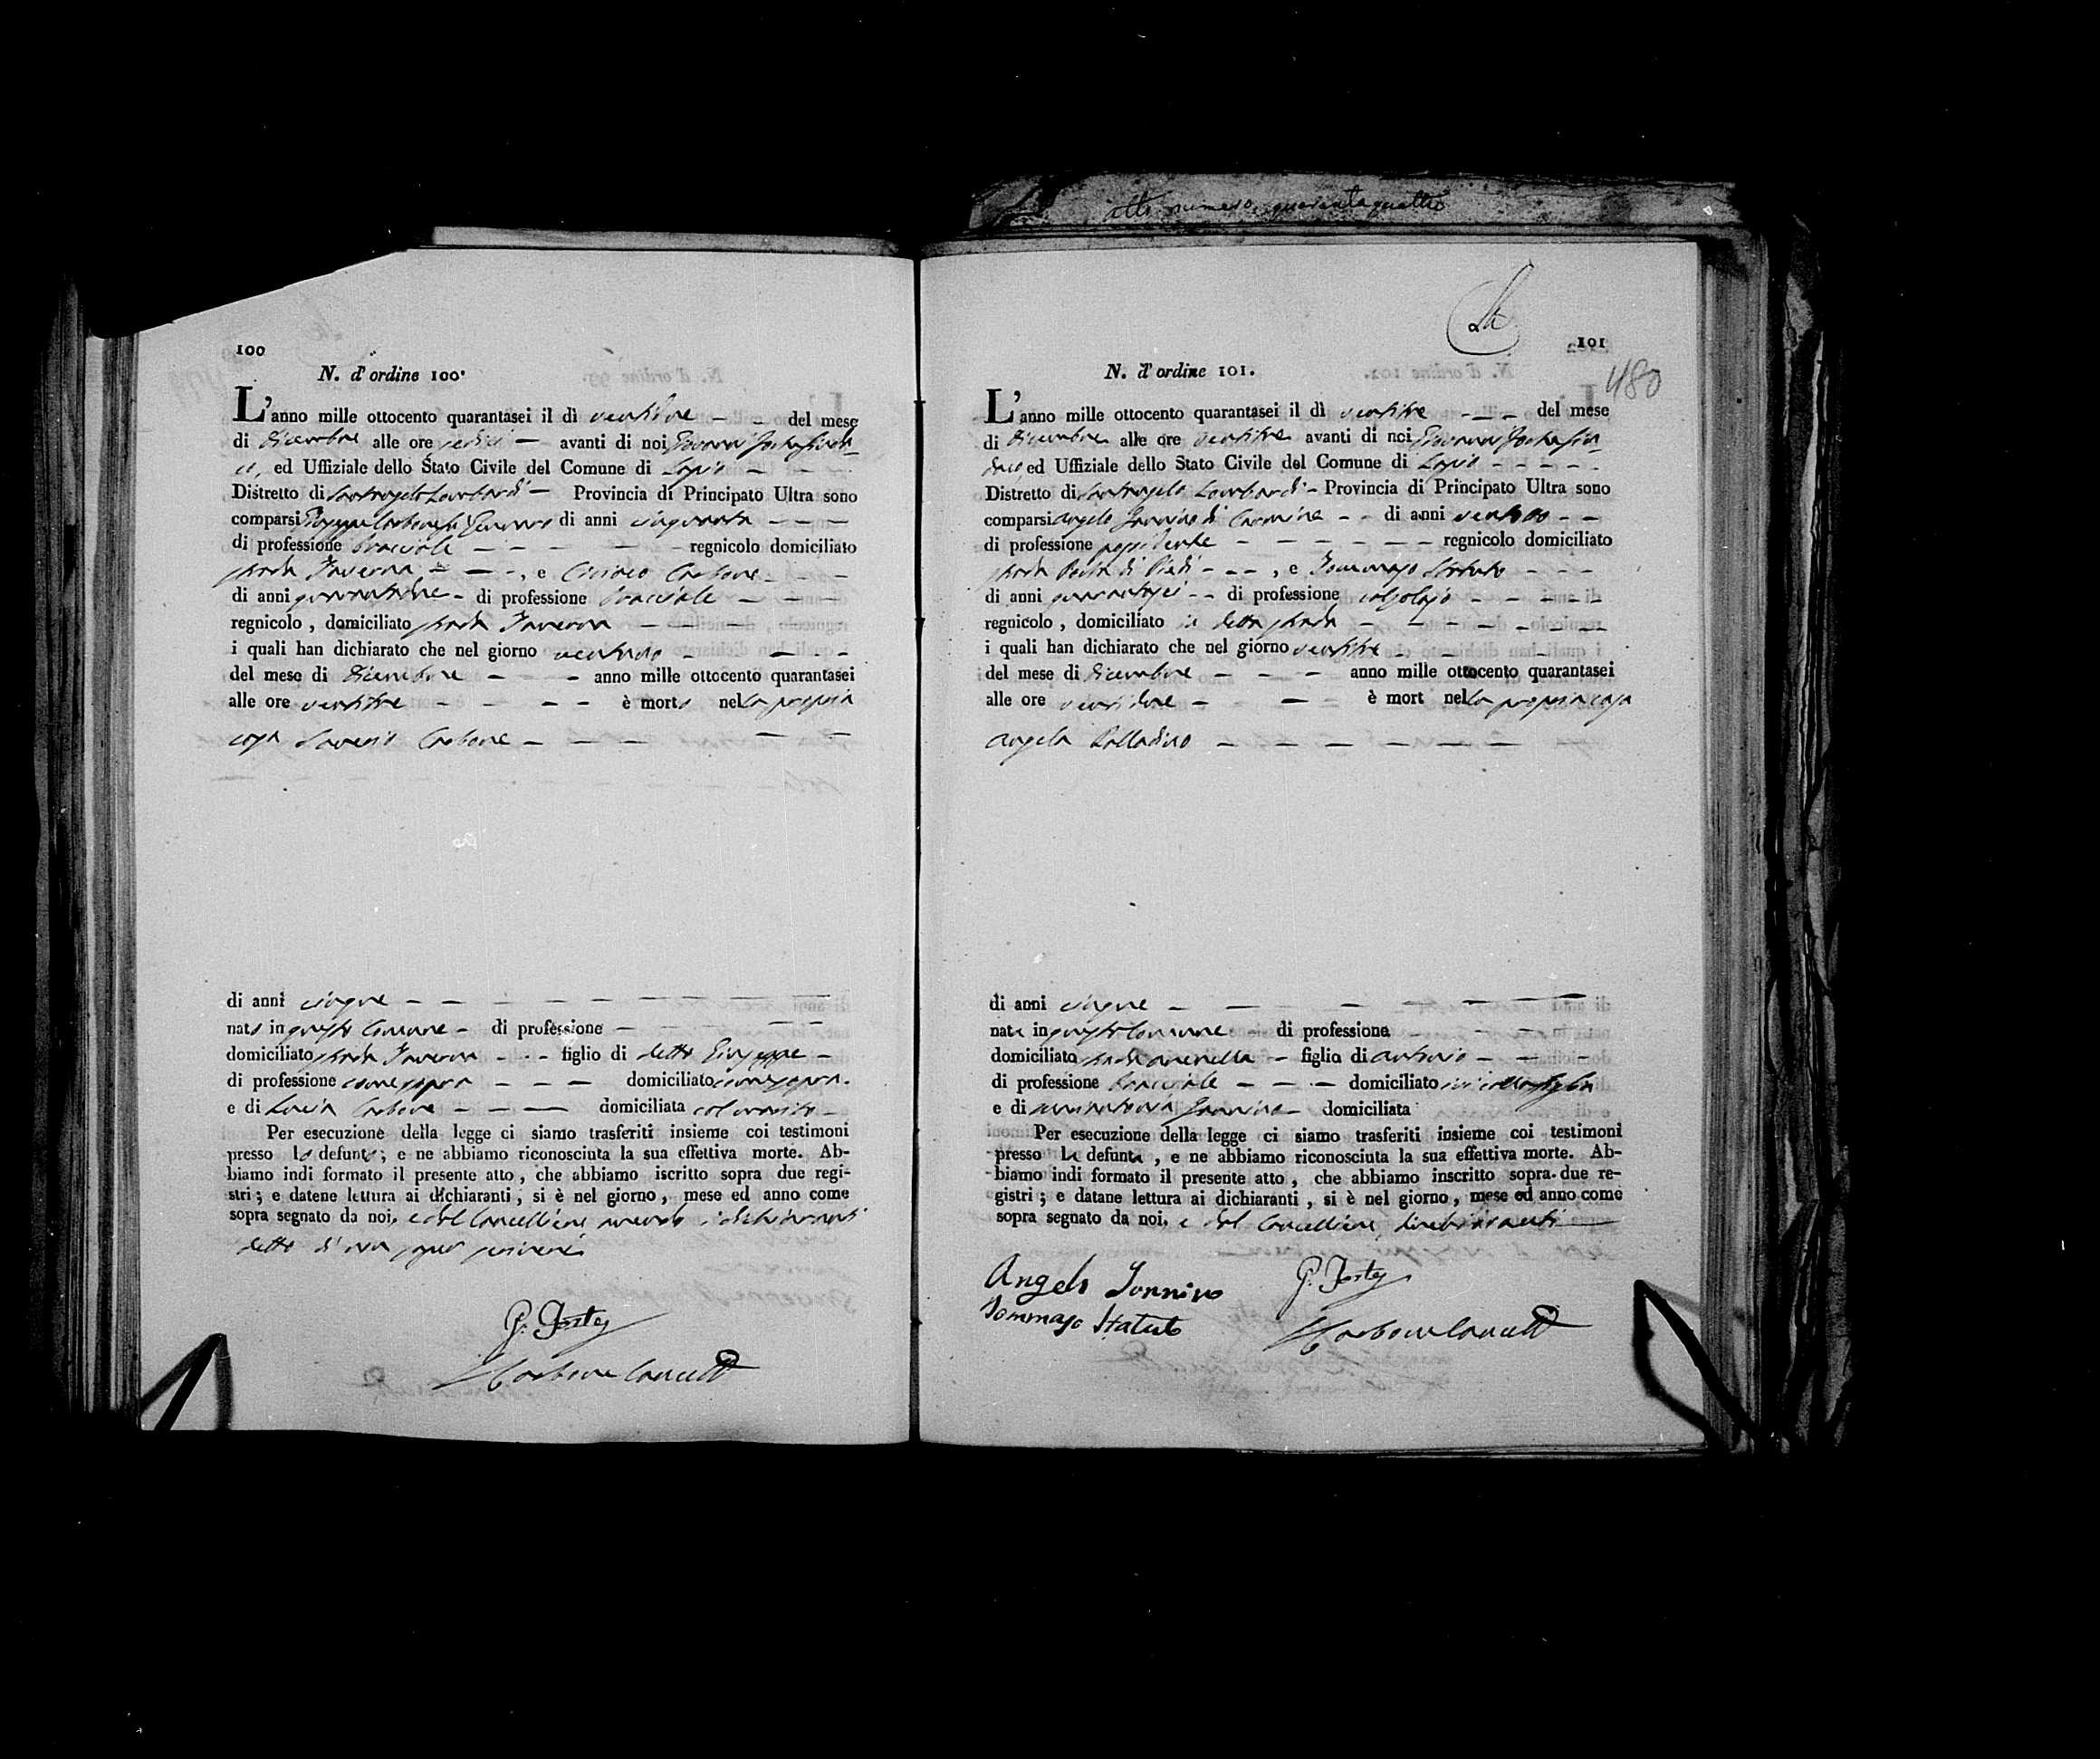 atto numero quarantaquattro
100
N. d'ordine 100.
L'anno mille ottocento quarantasei il dì ventidue del mese
di Dicembre alle ore sedici avanti di noi Giovanni
ed Uffiziale dello Stato Civile del Comune di Lapio
Distretto di Santangelo Lombardi Provincia di Principato Ultra sono
comparsi Giuseppe Carbone fu Gennaro di anni cinquanta
di professione bracciale regnicolo domiciliato
strada Taverna , e Ciriaco Carbone
di anni quarantadue di professione bracciale
regnicolo , domiciliato strada Taverna
i quali han dichiarato che nel giorno ventuno
del mese di Dicembre anno mille ottocento quarantasei
alle ore ventitre è morto nella propria
casa Saverio Carbone
di anni cinque
nato in questo Comune di professione
domiciliato strada Taverna figlio di detto Giuseppe
di professione come sopra domiciliato come sopra.
e di Lucia Carbone domiciliata col marito
Per esecuzione della legge ci siamo trasferiti insieme coi testimoni
presso lo defunto ; e ne abbiamo riconosciuta la sua effettiva morte. Ab-
biamo indi formato il presente atto , che abbiamo iscritto sopra due regi-
stri ; e datene lettura ai dichiaranti , si è nel giorno , mese ed anno come
sopra segnato da noi, e dal Cancelliere avendo i dichiaranti
detto di non saper scrivere
Carbone Cancell
101
480
N. d'ordine 101.
L'anno mille ottocento quarantasei il dì ventitre del mese
di Dicembre alle ore ventitre avanti di noi Giovanni
ed Uffiziale dello Stato Civile del Comune di Lapio
Distretto di Santangelo Lombardi Provincia di Principato Ultra sono
comparsi Angelo Jannino di Carmine di anni ventotto
di professione possidente regnicolo domiciliato
strada Porta di Piedi , e Tommaso Statuto
di anni quarantasei di professione calzolajo
regnicolo , domiciliato in detta strada
i quali han dichiarato che nel giorno ventitre
del mese di Dicembre anno mille ottocento quarantasei
alle ore ventidue è mort nella propria casa
Angela Palladino
di anni cinque
nata in questo Comune di professione
domiciliato strada figlia di Antonio
di professione bracciale domiciliato
e di Jannino domiciliata
Per esecuzione della legge ci siamo trasferiti insieme coi testimoni
presso la defunta , e ne abbiamo riconosciuta la sua effettiva morte. Ab-
biamo indi formato il presente atto , che abbiamo inscritto sopra due re-
gistri ; e datane lettura ai dichiaranti , si è nel giorno , mese ed anno come
sopra segnato da noi, e dal Cancelliere, dichiaranti
Angelo Jonnino
Tommaso Statuto
Carbone Cancell